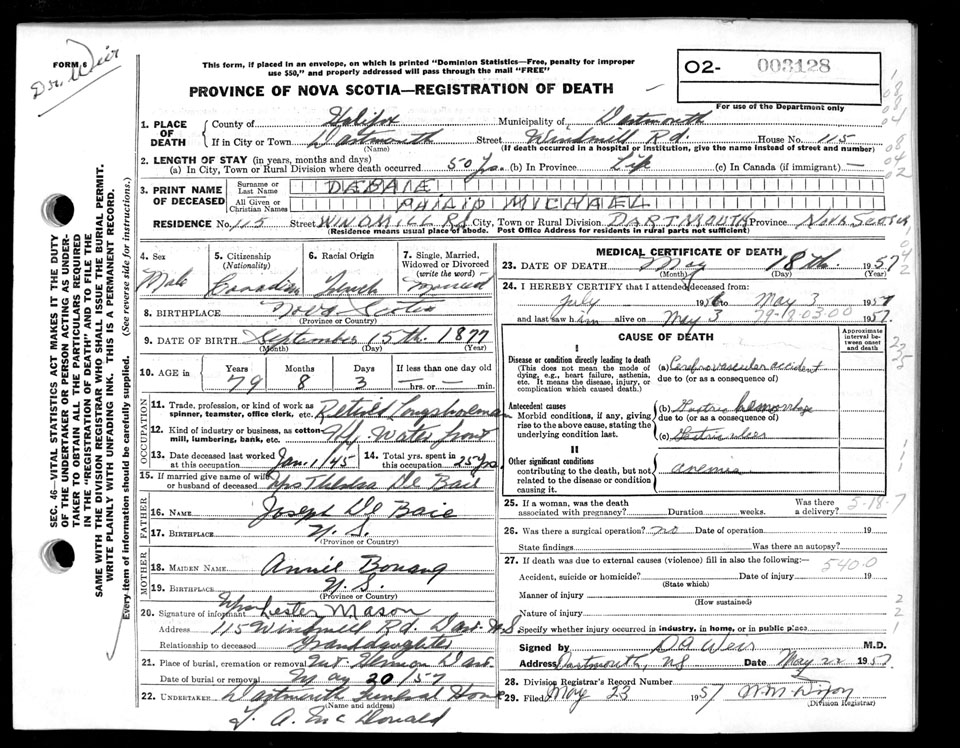 FORM 6
Dr. Weir
This form, if placed in an envelope, on which is printed "Dominion Statistics—Free, penalty for improper
use $50," and properly addressed will pass through the mail "FREE"
PROVINCE OF NOVA SCOTIA—REGISTRATION OF DEATH
O2- 003128
For use of the Department only
1. PLACE OF DEATH
County of Halifax Municipality of Dartmouth
If in City or Town Dartmouth Street Windmill Rd. House No. 115
(Name) (If death occurred in a hospital or institution, give the name instead of street and number)
2. LENGTH OF STAY (in years, months and days)
(a) In City, Town or Rural Division where death occurred 50 yrs. (b) In Province Life (c) In Canada (if immigrant) —
3. PRINT NAME OF DECEASED
Surname or Last Name DEBAIE
All Given or Christian Names PHILIP MICHAEL
RESIDENCE No. 115 Street WINDMILL RD City, Town or Rural Division DARTMOUTH Province NOVA SCOTIA
(Residence means usual place of abode. Post Office Address for residents in rural parts not sufficient)
SEC. 46—VITAL STATISTICS ACT MAKES IT THE DUTY
OF THE UNDERTAKER OR PERSON ACTING AS UNDER-
TAKER TO OBTAIN ALL THE PARTICULARS REQUIRED
IN THE "REGISTRATION OF DEATH" AND TO FILE THE
SAME WITH THE DIVISION REGISTRAR WHO SHALL ISSUE THE BURIAL PERMIT.
WRITE PLAINLY WITH UNFADING INK. THIS IS A PERMANENT RECORD.
Every item of information should be carefully supplied. (See reverse side for instructions.)
4. Sex Male
5. Citizenship (Nationality) Canadian
6. Racial Origin
7. Single, Married, Widowed or Divorced (write the word) Married
8. BIRTHPLACE Nova Scotia
(Province or Country)
9. DATE OF BIRTH September 15th. 1877
(Month) (Day) (Year)
10. AGE in Years 79 Months 8 Days 3 If less than one day old —hrs. or —min.
OCCUPATION
11. Trade, profession, or kind of work as spinner, teamster, office clerk, etc. Retired Longshoreman
12. Kind of industry or business, as cotton mill, lumbering, bank, etc. Hfx Water front
13. Date deceased last worked at this occupation Jan. 1/45
14. Total yrs. spent in this occupation 25 yrs.
15. If married give name of wife or husband of deceased Mrs Theresa De Baie
FATHER
16. NAME Joseph De Baie
17. BIRTHPLACE N. S.
(Province or Country)
MOTHER
18. MAIDEN NAME Annie Bonang
19. BIRTHPLACE N. S.
(Province or Country)
20. Signature of informant Mrs Lester Mason
Address 115 Windmill Rd. Dart. N.S.
Relationship to deceased Granddaughter
21. Place of burial, cremation or removal Mt. Hermon Dart.
Date of burial or removal May 20/57
22. UNDERTAKER Dartmouth Funeral Home
(Name and address)
T. A. Mc Donald
MEDICAL CERTIFICATE OF DEATH
23. DATE OF DEATH May 18th. 1957
(Month) (Day) (Year)
24. I HEREBY CERTIFY that I attended deceased from:
July 1956 to May 3 1957
and last saw him alive on May 3 1957.
CAUSE OF DEATH
Approximate interval between onset and death
I
Disease or condition directly leading to death
(This does not mean the mode of dying, e.g., heart failure, asthenia, etc. It means the disease, injury, or complication which caused death.)
(a) Cerebrovascular accident
due to (or as a consequence of)
Antecedent causes
Morbid conditions, if any, giving rise to the above cause, stating the underlying condition last.
(b) Gastric hemorrhage
due to (or as a consequence of)
(c) Gastric ulcer
II
Other significant conditions
contributing to the death, but not related to the disease or condition causing it.
anemia
25. If a woman, was the death associated with pregnancy? Duration weeks. Was there a delivery?
5-18-7
26. Was there a surgical operation? no Date of operation 19
State findings Was there an autopsy?
27. If death was due to external causes (violence) fill in also the following:—
540.0
Accident, suicide or homicide? Date of injury 19
(State which)
Manner of injury
(How sustained)
Nature of injury
Specify whether injury occurred in industry, in home, or in public place
Signed by D A Weir M.D.
Address Dartmouth, NS Date May 22 1957
28. Division Registrar's Record Number
29. Filed May 23 1957
(Division Registrar)